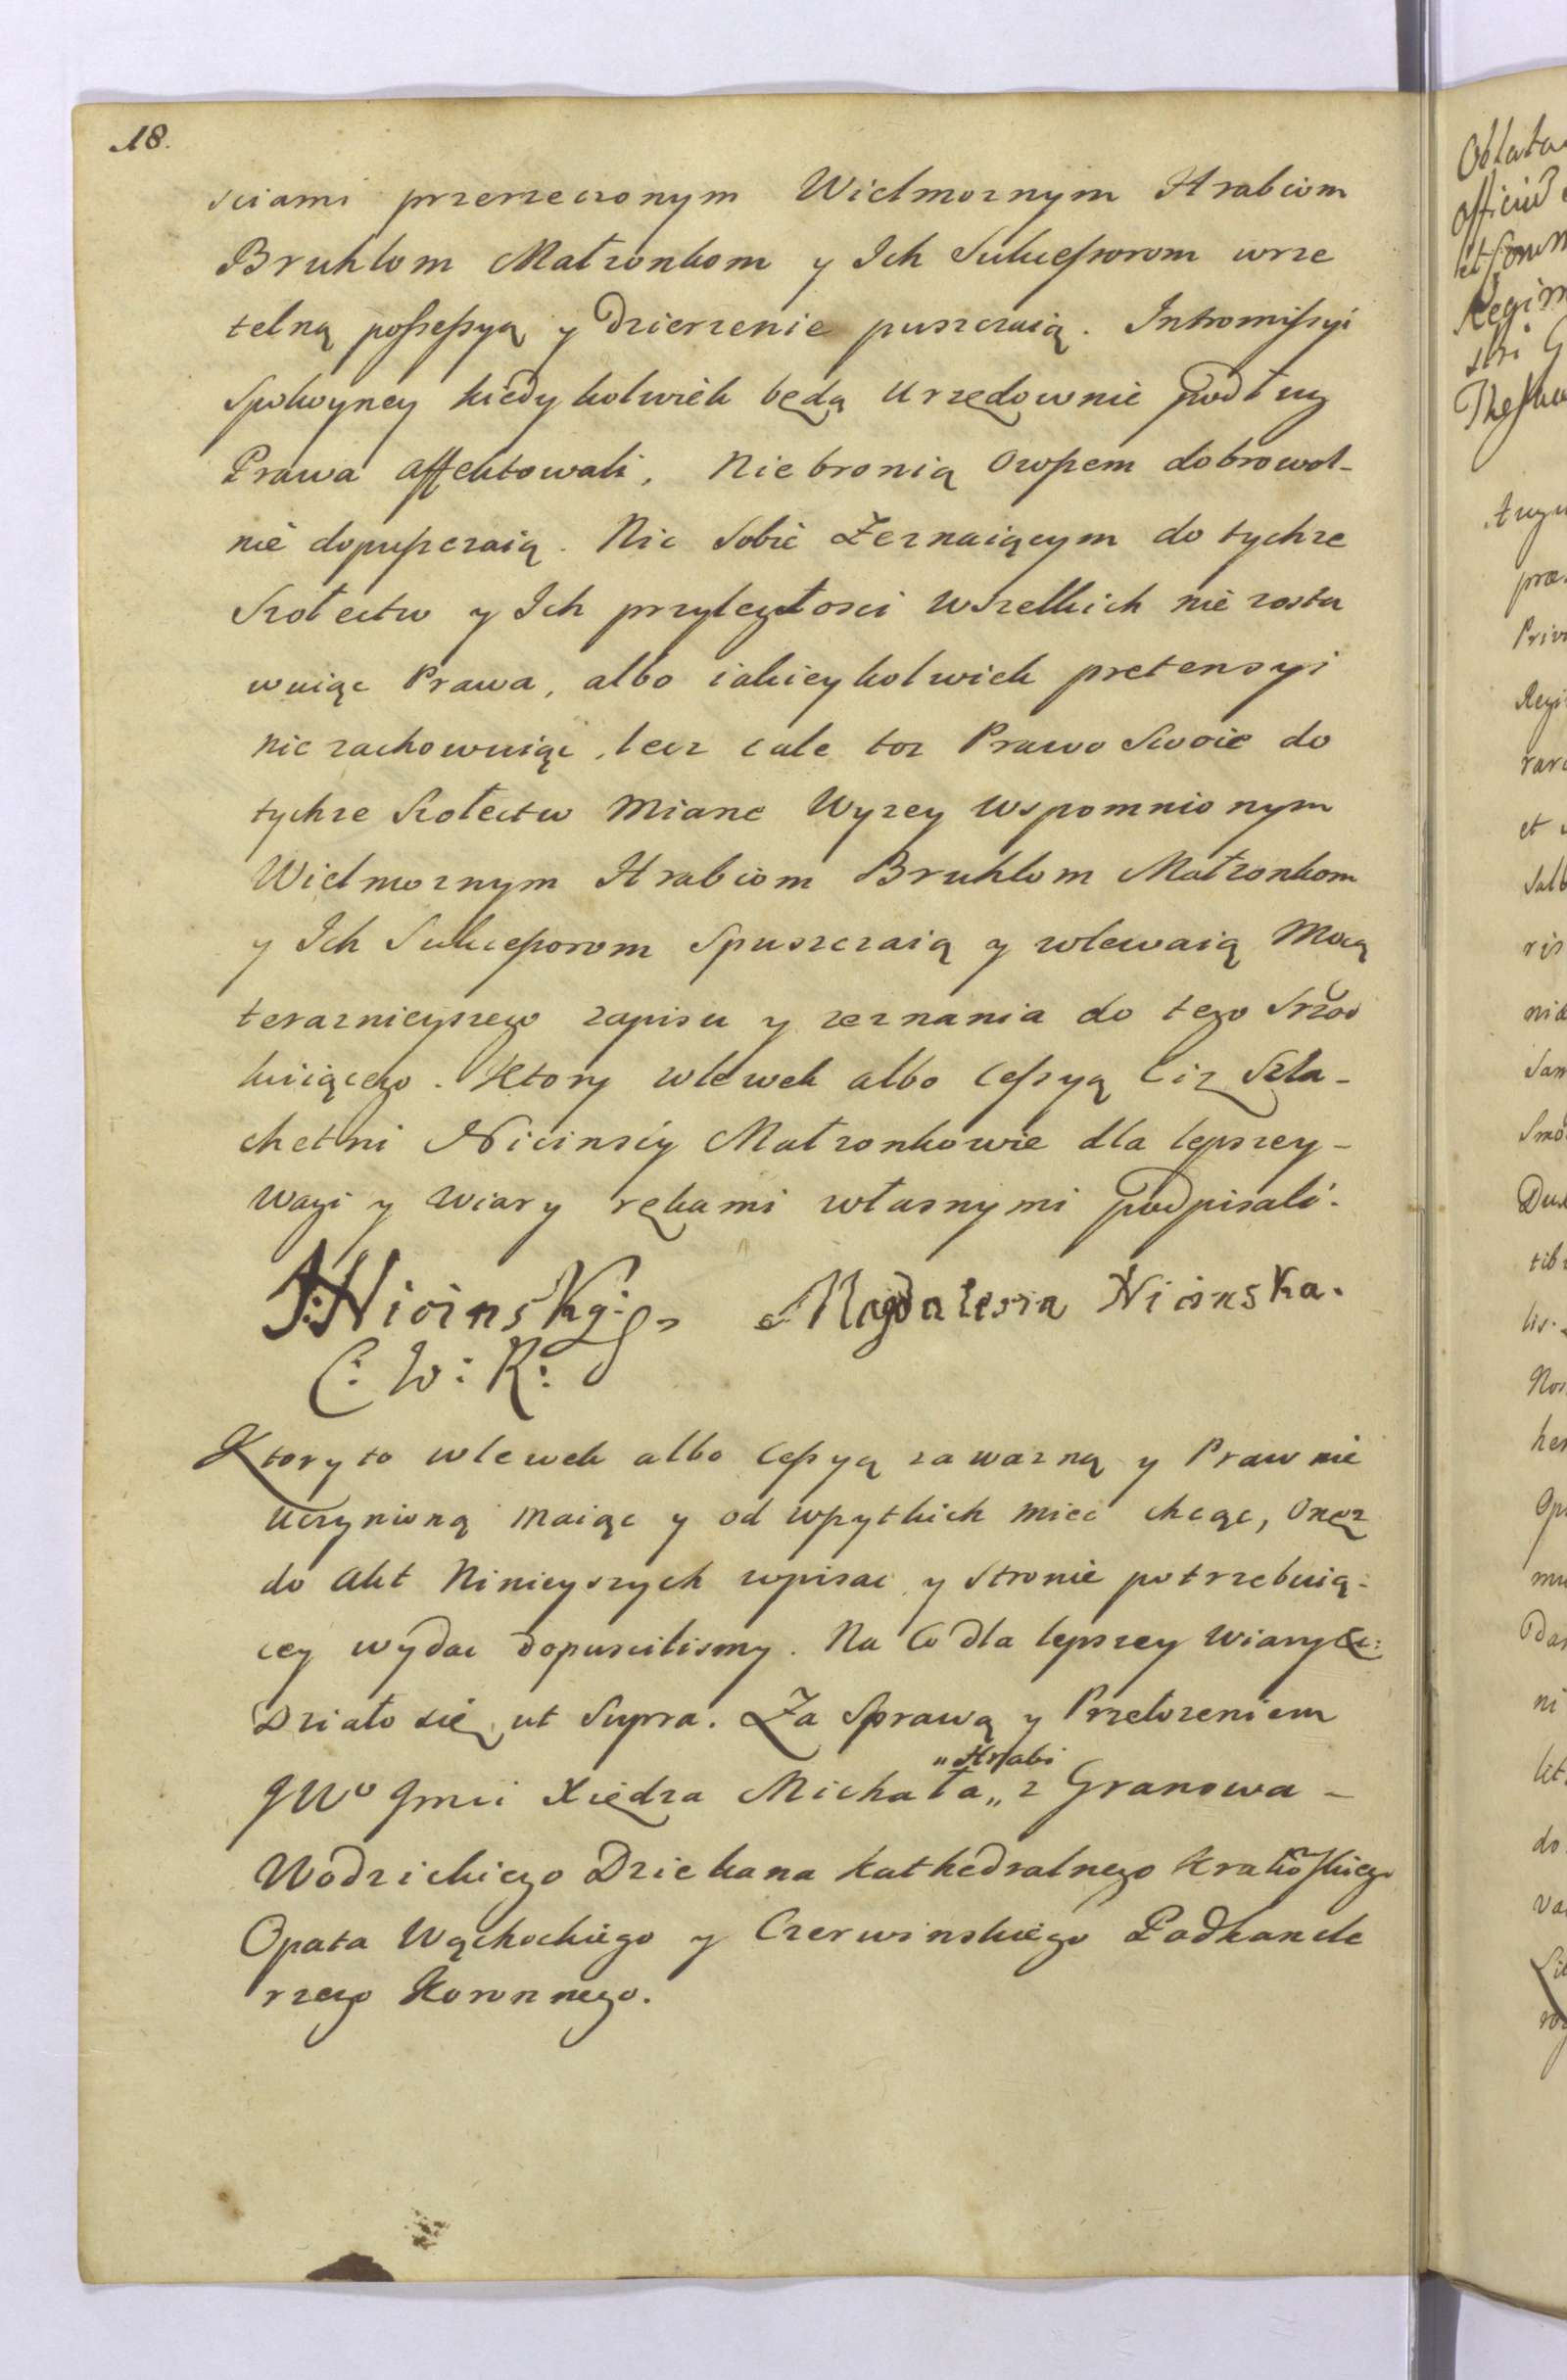 18.
sciami przerzeczonym Wielmoznym Hrabiom
Bruhlom Małzonkom y Ich Sukcessorom wrze
telną possessyą y Dzierzenie puszczaią. Intromissyi
Spokoyney kiedykolwiek będą Urzędownie podług
Prawa affektowali, Niebronią Owszem dobrowol-
nie dopuszczaią. Nic Sobie Zeznaiącym do tychze
Szołectw y Ich przyległosci Wszelkich nie zosta
wuiąc Prawa, albo iakieykolwiek pretensyi
nie zachowuiąc, lecz cale toz Prawo Swoie do
tychze Szołectw Miane Wyzey Wspomnionym
Wielmoznym Hrabiom Bruhlom Małzonkom
y Ich Sukcessorom Spuszczaią y wlewaią Mocą
teraznieyszego zapisu y zeznania do tego Srzod
kuiącego. Ktory wlewek albo Cessyą Ciz Szla-
chetni Nicinscy Małzonkowie dla lepszey-
Wagi y Wiary rękami własnymi podpisali.
J: Nicinsky:
C: W: K:
Magdalena Nicinska.
Ktoryto wlewek albo Cessyą za wazną y Prawnie
Uczynioną maiąc y od wszytkich miec chcąc, Onęz
do Akt Ninieyszych wpisac y Stronie potrzebuią-
cey wydac dopuscilismy. Na Co dla lepszey Wiary &c:
Działo się ut Supra. Za Sprawą y Przełozeniem
JWo Jmci Xiędza Michała „ z Granowa -
„Hrabi
Wodzickiego Dziekana Kathedralnego Krakoskiego
Opata Wąchockiego y Czerwinskiego Podkancle
rzego Koronnego.
Oblata
officiu
Regim
Augu
præ
Priv
Regi
et
Salb
ris
Smo
lis.
Nos
do